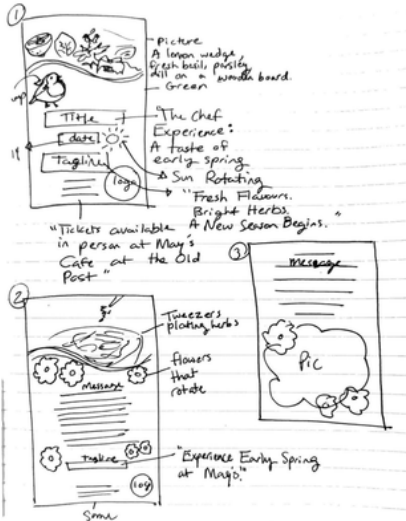 ①
Picture
A lemon wedge,
fresh basil, parsley,
dill on a wooden board.
Green
Title
The Chef
Experience:
A taste of
early spring
date
Sun Rotating
Tagline
logo
"Fresh Flavours.
Bright Herbs.
A New Season Begins."
"Tickets available
in person at May's
Cafe at the Old
Post"
②
Tweezers
plating herbs
flowers
that
rotate
Message
Tagline
"Experience Early Spring
at May's."
logo
Same
③
Message
Pic